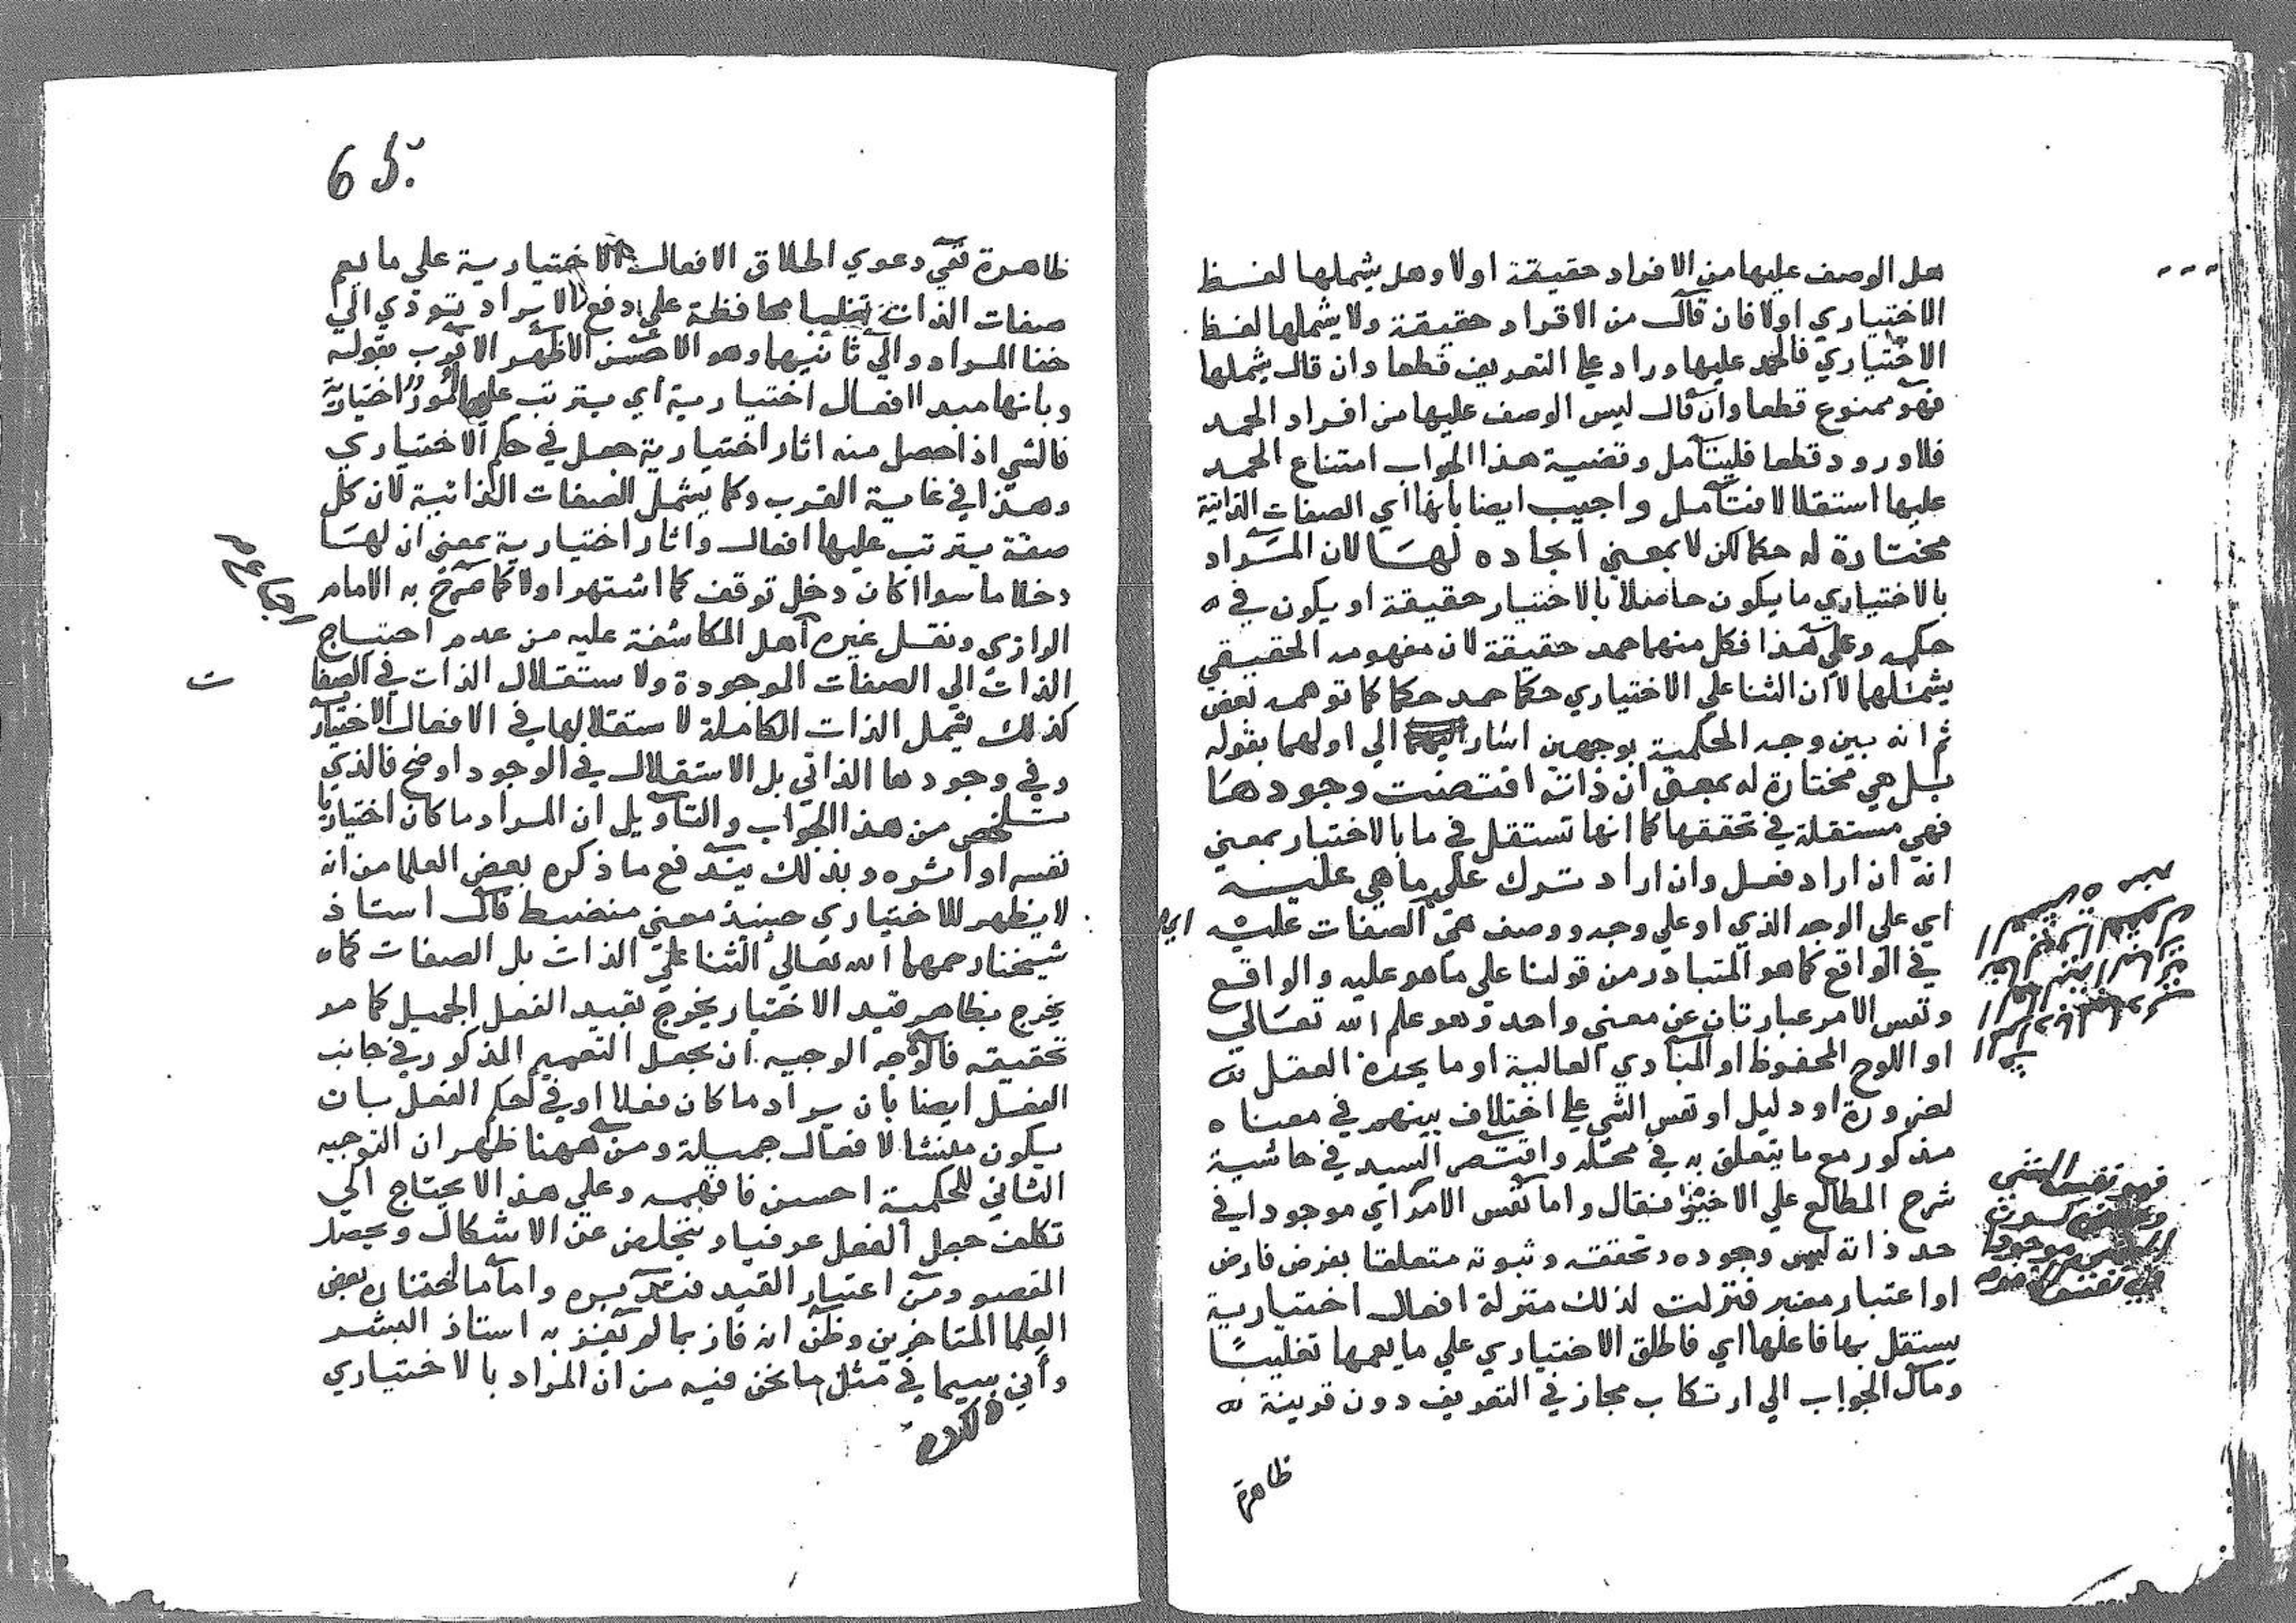 هل الوصف عليها من الافراد حقيقة اولا وهل يشملها لفظ
الاختياري اولا فان قال من الافراد حقيقة ولا يشملها لفظ
الاختياري فالحمد عليها وراد علي التعريف قطعا وان قال يشملها
فهو ممنوع قطعا وان قال ليس الوصف عليها من افراد الحمد
فلا ورود قطعا فليتامل وقضية هذا الجواب امتناع الحمد
عليها استقلالا فتامل واجيب ايضا بانها اي الصفات الذاتية
مختارة له حكما لكن لا بمعني ايجاده لها لان المراد
بالاختياري ما يكون حاصلا بالاختيار حقيقة او يكون في
حكمه وعلي هذا فكل منهما حمد حقيقة لان مفهومه الحقيقي
يشملها لا ان الثنا علي الاختياري حكما حمد حكما كما توهمه بعض
ثم انه بين وجه الحكمية بوجهين اشار الي اولهما بقوله
بل هي مختارة له بمعني ان ذاته اقتضت وجودها
فهي مستقلة في تحققها كما انها تستقل في ما بالاختيار بمعني
انه ان اراد فعل وان اراد ترك علي ما هي عليه
اي علي الوجه الذي او علي وجه ووصف هي الصفات عليه
في الواقع كما هو المتبادر من قولنا علي ما هو عليه والواقع
ونفس الامر عبارتان عن معني واحد وهو علم الله تعالي
او اللوح المحفوظ او المبادي العالية او ما يجده العقل
لضرورة او دليل او نفس الشي علي اختلاف بينهم في معناه
مذكور مع ما يتعلق به في محله واقتصر السيد في حاشية
شرح المطالع علي الاخير فقال واما نفس الامر اي موجودا في
حد ذاته ليس وجوده وتحققه وثبوته متعلقا بفرض فارض
او اعتبار معتبر فنزلت لذلك منزلة افعال اختيارية
يستقل بها فاعلها اي فاطلق الاختياري علي ما يعمها تغليبًا
ومآل الجواب الي ارتكاب مجاز في التعريف دون قرينة
ظاهرة
6
ظاهرة نفي دعوي اطلاق الافعال الاختيارية علي ما يعم
صفات الذات تغليبا محافظة علي دفع الايراد تودي الي
خفا المراد والي ثانيهما وهو الاحسن الاظهر الاقرب بقوله
وبانها مبدا افعال اختيارية اي يترتب عليها امور اختيارية
فالشي اذا حصل منه اثار اختيارية حصل في حكم الاختياري
وهذا في غاية القرب وكما يشمل الصفات الذاتية لان كل
صفة يترتب عليها افعال واثار اختيارية بمعني ان لها
دخلا ما سواا كان دخل توقف كما اشتهر اولا كما صرح به الامام
الرازي ونقل غيره اهل المكاشفة عليه من عدم احتياج
الذات الي الصفات الموجودة ولاستقلال الذات في الصفا
ت
كذلك يشمل الذات الكاملة لاستقلالها في الافعال الاختيار
وفي وجودها الذاتي بل الاستقلال في الوجود اوضح فالذي
تلخص من هذا الجواب والتاويل ان المراد ما كان اختياريا
نفسه او اثره وبذلك يندفع ما ذكره بعض العلما من انه
لا يظهر للاختياري حينئذ معني منضبط قال استاذ
شيخنا رحمهما الله تعالي الثنا علي الذات بل الصفات كما
يخرج بظاهر قيد الاختيار يخرج بقيد الفعل الجميل كما هو
تحقيقه فالوجه الوجيه ان يجعل التعميم المذكور في جانب
الفعل ايضا بان يراد ما كان فعلا او في حكم الفعل بان
يكون منشا لافعال جميلة ومن ههنا ظهر ان التوجيه
الثاني للحكمية احسن فافهمه وعلي هذا لا يحتاج الي
تكلف جعل الفعل عرفيا ويتخلص عن الاشكال ويحصل
المقصود من اعتبار القيد فتدبره واما ما اختاره بعض
العلما المتاخرين وظن انه فاز بما لم يفز به استاذ البشر
واني سيما في مثل ما نحن فيه من ان المراد بالاختياري